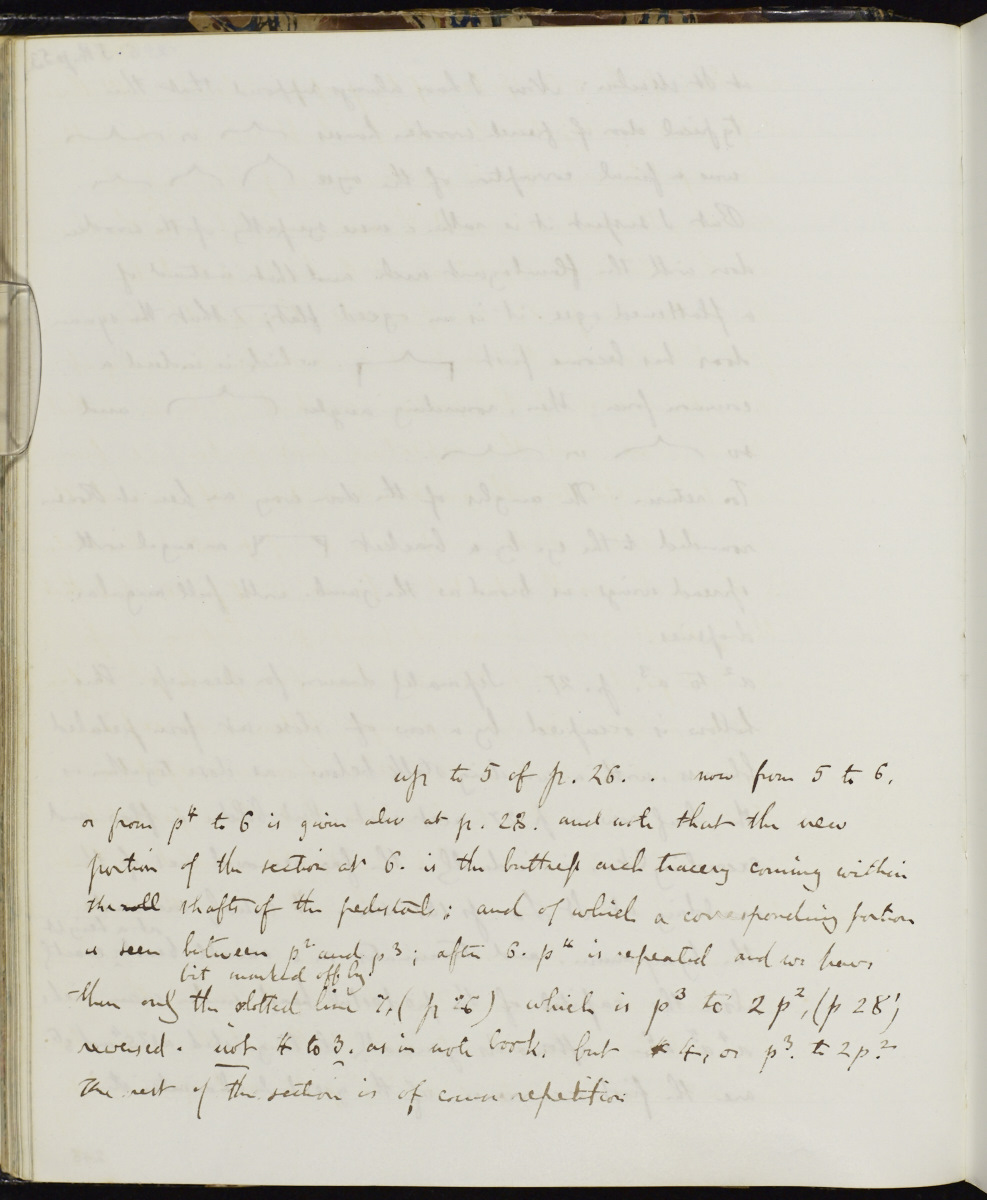 up to 5 of p. 26. . now from 5 to 6.
or from p4 to 6 is given also at p. 28. and note that the new
portion of the section at 6. is the buttress and tracery coming within
the roll shafts of the pedestal; and of which a corresponding portion
is seen between p2 and p3; after 6. p4 is repeated and we have
bit marked off by
then only the dotted line 7, (p 26) which is p3 to 2 p2, (p 28)
reversed. not 4 to 3. as in note book. but 4, or p3. to 2p.2
The rest of the section is of course repetition